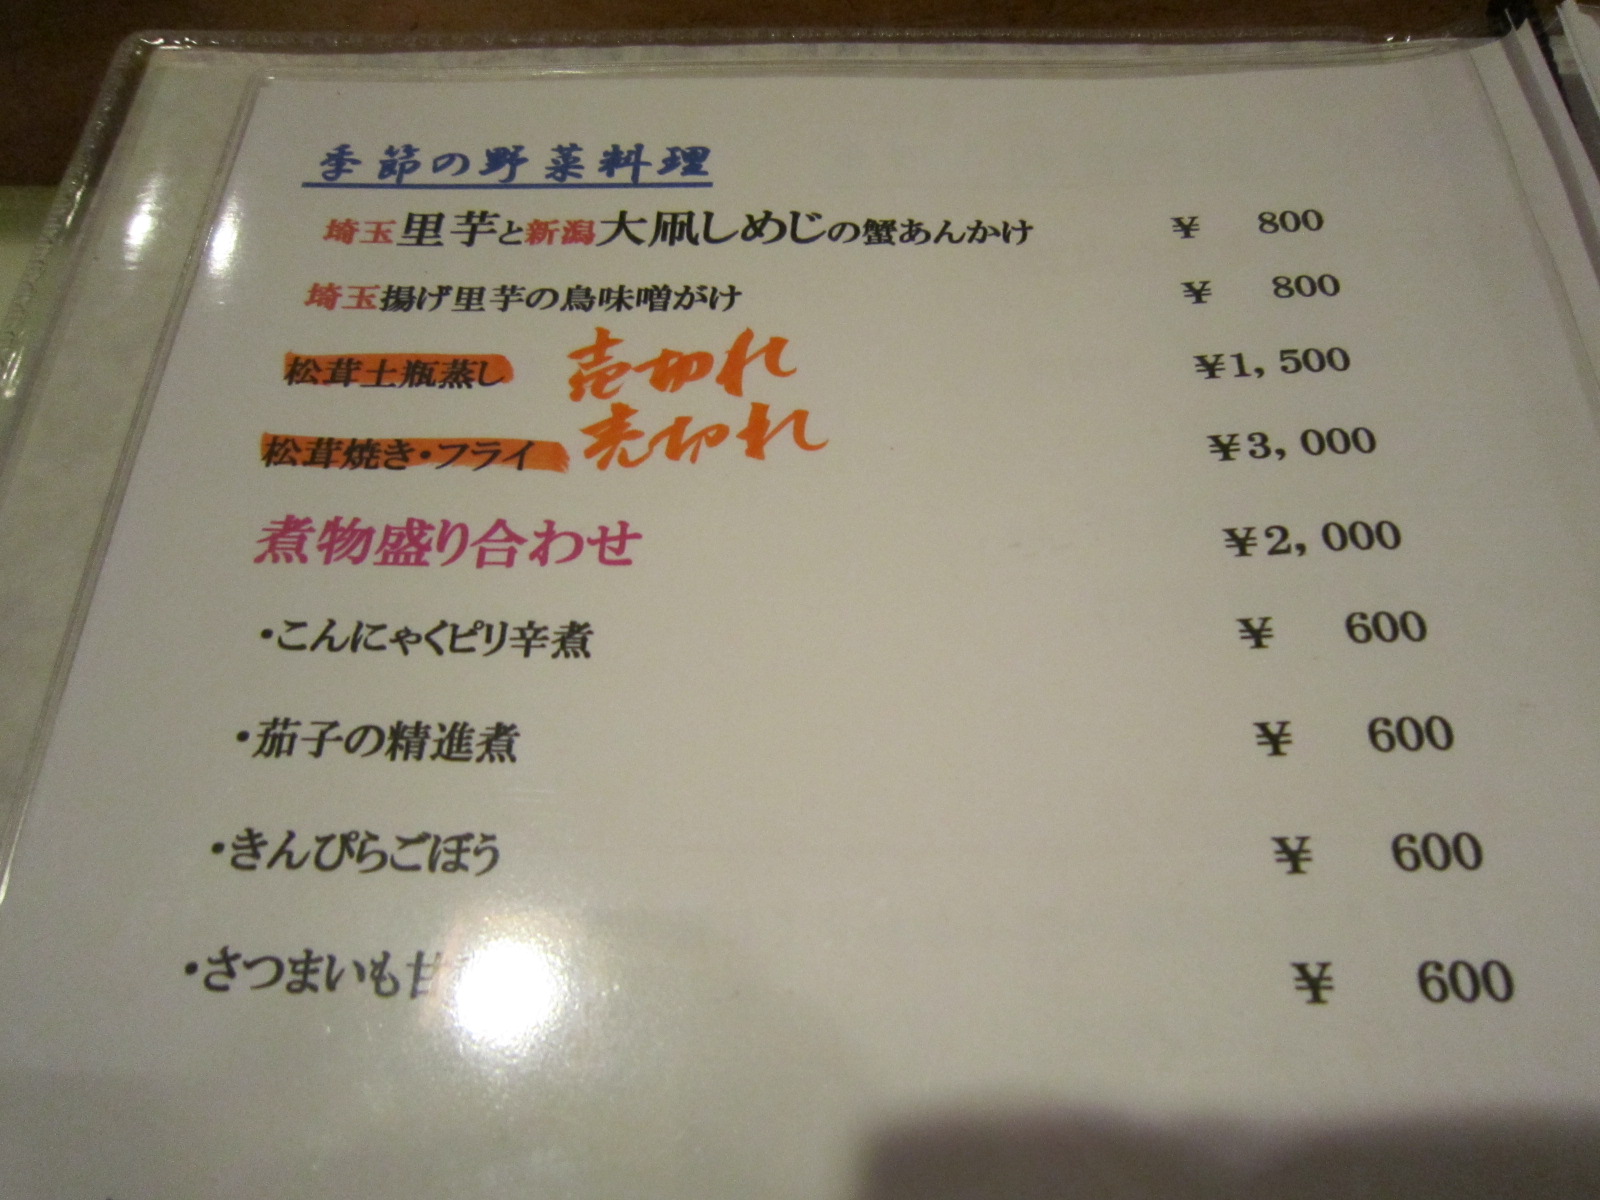 季節の野菜料理
埼玉里芋と新潟大凧しめじの蟹あんかけ ￥ 800
埼玉揚げ里芋の鳥味噌がけ ￥ 800
松茸土瓶蒸し 売切れ ￥1,500
松茸焼き・フライ 売切れ ￥3,000
煮物盛り合わせ ￥2,000
・こんにゃくピリ辛煮 ￥ 600
・茄子の精進煮 ￥ 600
・きんぴらごぼう ￥ 600
・さつまいも甘 ￥ 600